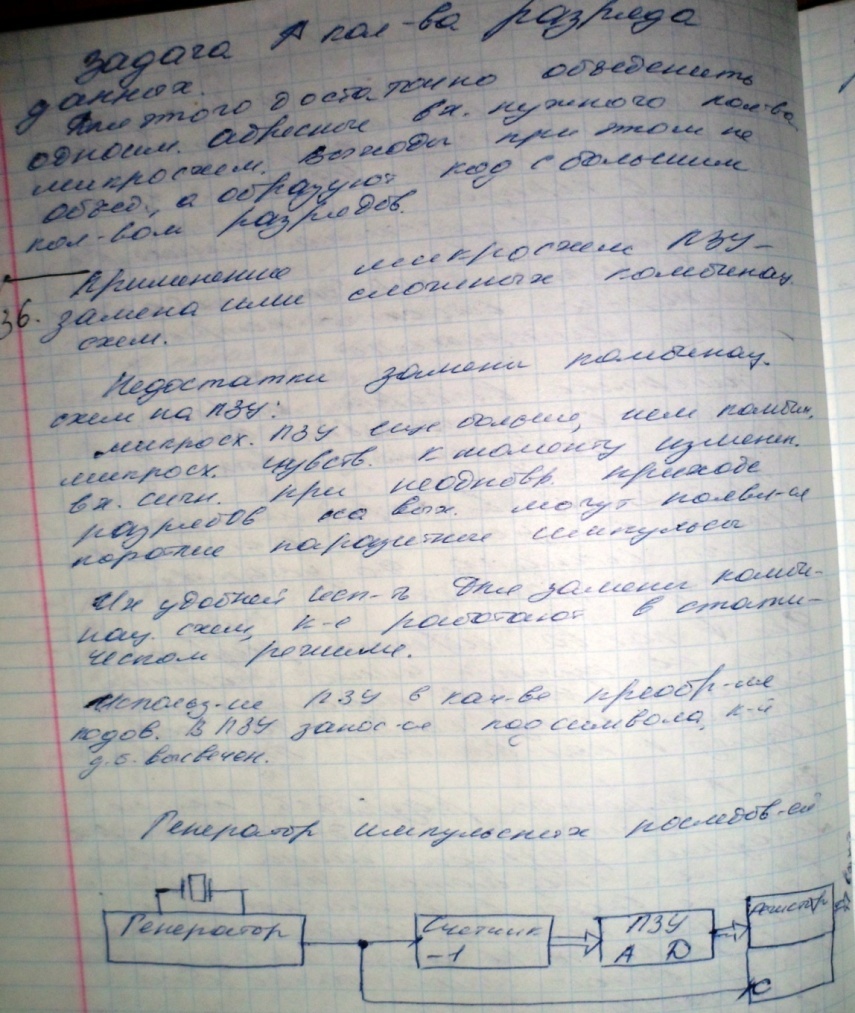 Задача ↑ кол-ва разряда
данных.
Для этого достаточно объеденить
одноим. адресные вх. нужного кол-ва
микросхем. Выходы при этом не
объед., а образуют код с большим
кол-вом разрядов.
Применение микросхем ПЗУ –
36. замена ими сложных комбинац.
схем.
Недостатки замены комбинац.
схем на ПЗУ:
микросх. ПЗУ еще больше, чем комбин.
микросх. чувств. к моменту изменен.
вх. сигн. при неодновр. приходе
разрядов на вых. могут появл-ся
короткие паразитные импульсы
Их удобней исп-ть для замены комби-
нац. схем, к-е работают в стати-
ческом режиме.
Использ-ие ПЗУ в кач-ве преобр-ля
кодов. В ПЗУ занос-ся код символа, к-й
д.б. высвечен.
Генератор импульсных последов-ей
Генератор
Счетчик
-1
ПЗУ
A D
Регистр
C